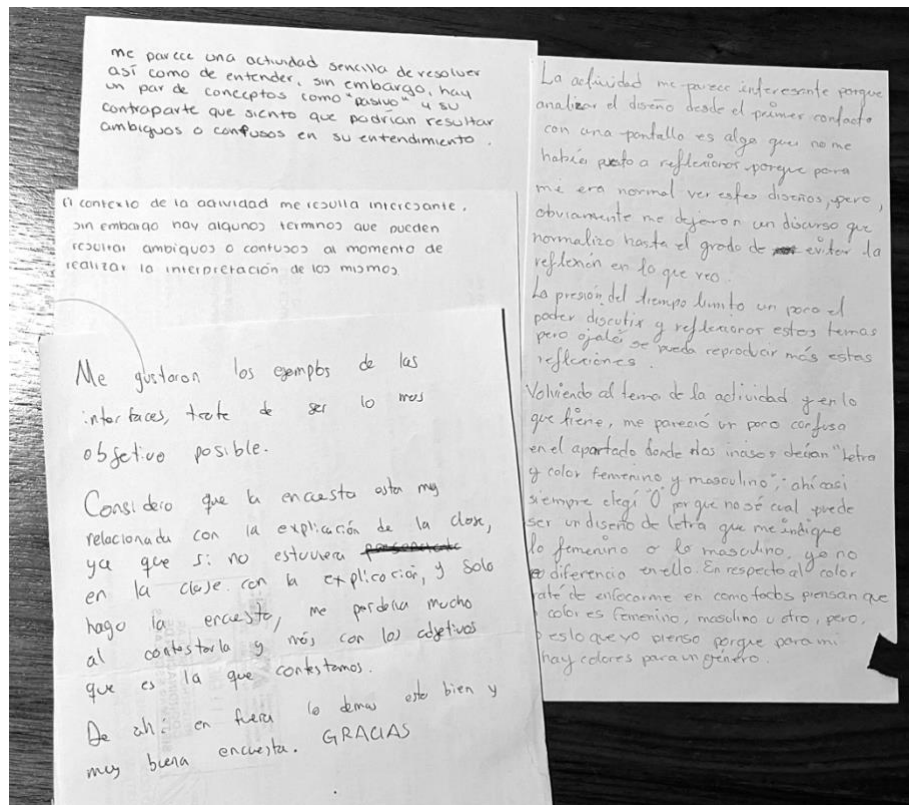 me parece una actividad sencilla de resolver
así como de entender, sin embargo, hay
un par de conceptos como "pasivo" y su
contraparte que siento que podrían resultar
ambiguos o confusos en su entendimiento.
El contexto de la actividad me resulta interesante,
sin embargo hay algunos terminos que pueden
resultar ambiguos o confusos al momento de
realizar la interpretación de los mismos
Me gustaron los ejemplos de las
interfaces, trate de ser lo mas
objetivo posible.
Considero que la encuesta esta muy
relacionada con la explicación de la clase,
ya que si no estuviera
en la clase con la explicación, y solo
hago la encuesta, me perderia mucho
al contestarla y más con los adjetivos
que es la que contestamos.
De ahi en fuera lo demas esta bien y
muy buena encuesta. GRACIAS
La actividad me parece interesante porque
analizar el diseño desde el primer contacto
con una pantalla es algo que no me
había puesto a reflexionar porque para
mi era normal ver estos diseños, pero,
obviamente me dejaron un discurso que
normalizo hasta el grado de evitar la
reflexión en lo que veo.
La presión del tiempo limito un poco el
poder discutir y reflexionar estos temas
pero ojalá se pueda reproducir más estas
reflexiones.
Volviendo al tema de la actividad y en lo
que tiene, me pareció un poco confuso
en el apartado donde los incisos decían "Letra
y color femenino y masculino", ahí casi
siempre elegí "0" por que no sé cual puede
ser un diseño de letra que me indique
lo femenino o lo masculino, yo no
diferencio en ello. En respecto al color
traté de enfocarme en como todos piensan que
color es femenino, masculino u otro, pero,
es lo que yo pienso porque para mi
hay colores para un género.